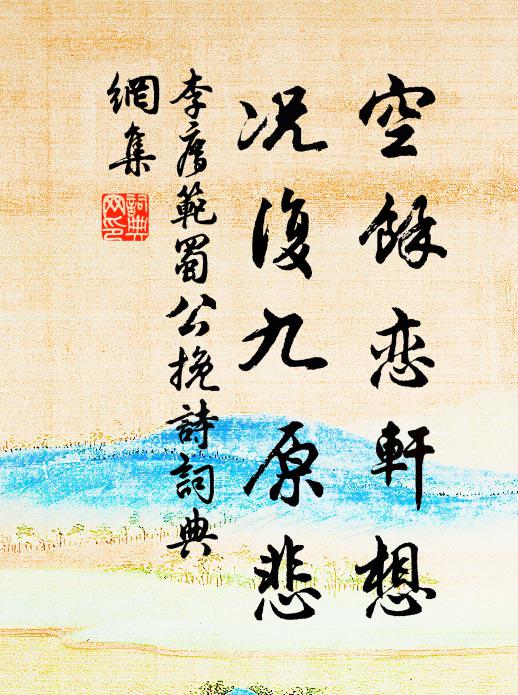 空餘恋軒想
况復九原悲
李廌範蜀公挽詩詞典
網集
詞典
网印